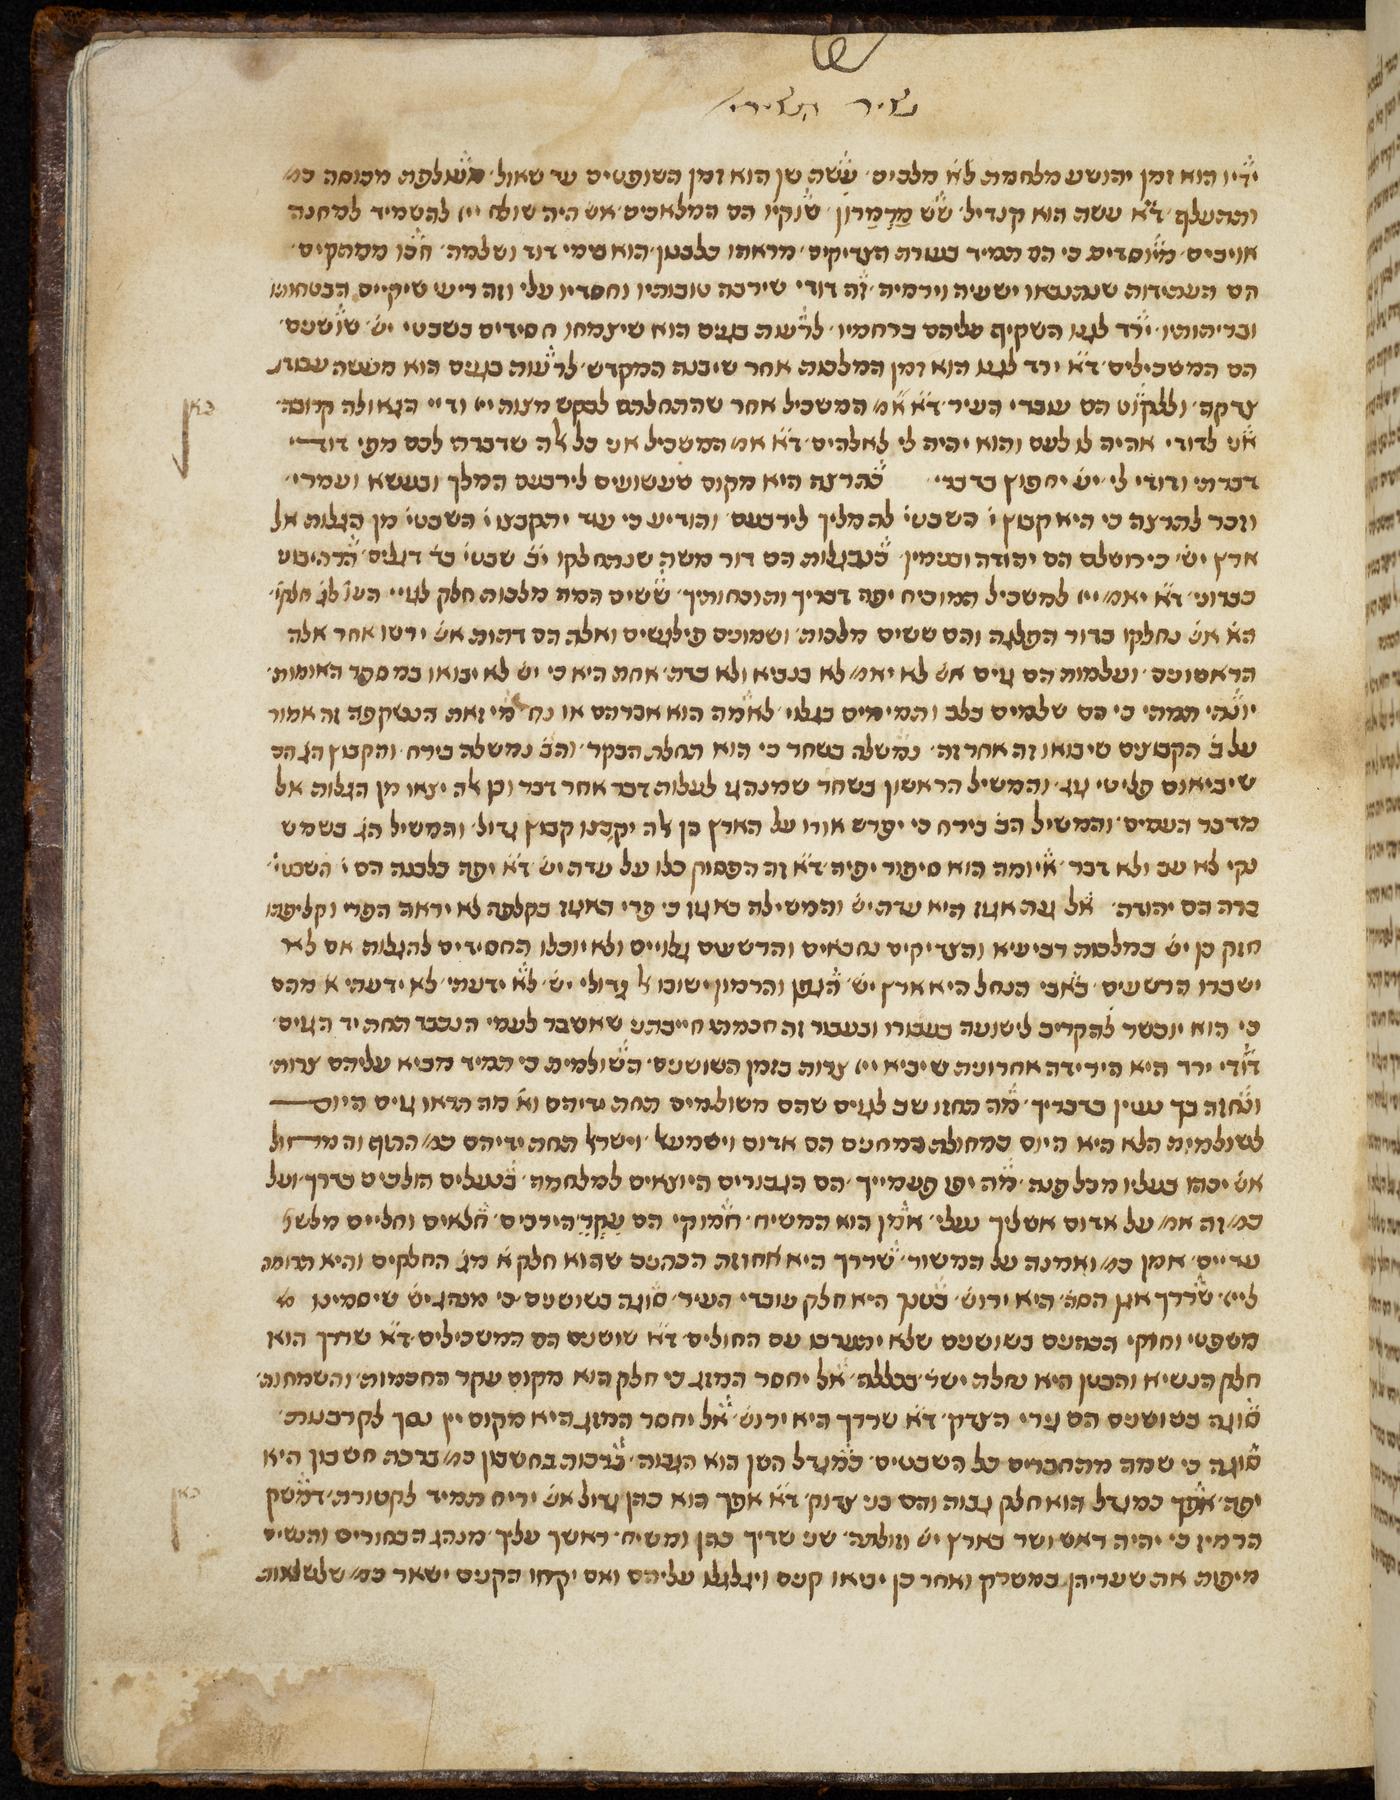 שיר השירי'
ידיו הוא זמן יהושע מלחמת ל״א מלכים עשת שן הוא זמן השופטים עד שאול מעולפת מכוסה כמ'
והתעלף ד״א עשת הוא קנדיל שש מרמרון שוקיו הם המלאכים אש היה שולח ייי להשמיד למחנה
אויבים מיוסדים כי הם תמיד בעזרת הצדיקים מראהו כלבנון הוא שמי דוד ושלמה חכו ממתקים
הם העתידות שנתנבאו ישעיה וירמיה זה דודי שירבה טובותיו וחסדיו עלי וזה ריעי שיקיים הבטחותיו
ובריתותיו ירד לגנו השקיף עליהם ברחמיו לרעות בגנים הוא שיצמחו חסידים בשבטי יש' שושנים
הם המשכילים ד״א ירד לגנו הוא זמן המלכות אחר שיבנה המקדש לרעות בגנים הוא מעשה עבודת
צדקה וללקוט הם עובדי העיר ד״א אמ' המשכיל אחר שהתחלתם לבקש מצות ייי ודיי הגאולה קרובה
אני לדודי אהיה לו לעם והוא יהיה לי לאלהים ד״א אמ' המשכיל אני כל אלה שדברתי לכם מפי דודי
דברתי ודודי לי יש' יחפוץ בדברי כתרצה היא מקום שעשועים לירבעם המלך ובעשא ועמרי
וזכר לתרצה כי היא קבוץ י' השבטי' להמליך לירבעם והודיע כי עוד יתקבצו י' השבטי' מן הגלות אל
ארץ יש' כירושלם הם יהודה ובנימין כנדגלות הם דור משה שנתחלקו י״ב שבטי' בד' דגלים הרהיבוני
כנדוני ד״א יאמ' ייי למשכיל המוכיח יפה דבריך ותוכחותיך ששים המה מלכות חלק לגויי העו' לג' חלקי'
הא' אש נחלקו בדור הפלגה והם ששים מלכות ושמונים פילגשים ואלה הם דתות אש ירשו אחר אלה
הראשונים ועלמות הם גוים אש לא יאמ' לא בנביא ולא בדת אחת היא כי יש' לא יבואו במספר האומות
יונתי תמתי כי הם שלמים בלב ותמימים כגלוי לאמה הוא אברהם או נח מי זאת הנשקפה זה אמור
על ב' הקבוצים שיבואו זה אחר זה נמשלה בשחר כי הוא תחלת הבקר והב' נמשלה בירח והקבוץ הג' הם
שיביאום פליטי גוג והמשיל הראשון בשחר שמנהגו לעלות דבר אחר דבר וכן אלה יצאו מן הגלות אל
מדבר העמים והמשיל הב' בירח כי יפרש אורו על הארץ כן אלה יקבצו קבוץ גדול והמשיל הג' בשמש
נקי לא עב ולא דבר איומה הוא סיפור יפיה ד״א זה הפסוק כלו על עדת יש' ד״א יפה כלבנה הם י' השבטי'
ברה הם יהודה אל גנת אגוז היא עדת יש' והמשילה כאגוז כי פרי האגוז בקלפה לא יראה הפרי וקליפתו
חזק כן יש' במלכות רביעיא והצדיקים נחבאים והרשעים גלויים ולא יוכלו החסידים להגלות אם לא
ישברו הרשעים באבי הנחל היא ארץ יש' הגפן והרמון ישובו אל גדולי יש' לא ידעתי לא ידעתי א' מהם
כי הוא יוכשר להקריב לישועה בעבורו ובעבור זה חכמתו חייבתני שאשבר לעמי הנכבד תחת יד הגוים
דודי ירד היא הירידה אחרונית שיביא ייי צרות בזמן השושנים השולמית כי תמיד מביא עליהם צרות
ונחזה בך נעיין בדבריך מה תחזו שב לגוים שהם משולמים תחת ידיהם וא' מה תראו גוים היום
לשולמית הלא היא היום כמחולת המחנים הם אדום וישמעאל וישראל תחת ידיהם כמ' התוף והמחול
אש יכהו בעליו מכל פנה מה יפו פעמייך הם הגבורים היוצאים למלחמה בנעלים הולכים בדרך ועל
כמ' זה אמ' על אדום אשליך נעלי אמן הוא המשיח חמוקי הם עקר הירכים חלאים וחליים מלשון
עדיים אמן כמ' ואמנה על המשור שררך היא אחוזת הכהנים שהוא חלק א' מג' החלקים והיא תרומה
לייי שררך אגן הסהר היא ירוש' בטנך היא חלק עובדי העיר סוגה בשושנים כי מנהג יש' שיסמינו
משפטי וחוקי הכהנים בשושנים שלא יתערבו עם החולים ד״א שושנים הם המשכילים ד״א שררך הוא
חלק הנשיא והבטן היא נחלת ישר' בכללה אל יחסר המזג כי חלק הוא מקום עקר החכמות והשמחות
סוגה בשושנים הם גרי הצדק ד״א שררך היא ירוש' אל יחסר המזג היא מקום יין נסך לקרבנות
סוגה כי שמה מתחברים כל השבטים כמגדל השן הוא הגבוה ברכות בחשבון כמ' ברכת חשבון היא
יפה אפך כמגדל הוא חלק גבוה והם בני צדוק ד״א אפך הוא כהן גדול אש יריח תמיד לקטורת דמשק
הרמיז כי יהיה ראש ושר בארץ יש' וזולתה שני שדיך כהן ומשיח ראשך עליך מנהג הבחורים והנשים
מיפות את שעריהן במסרק ואחר כן יביאו קנים ויגלגלו עליהם ואם יקחו הקנים ישאר כמ' שלשלאות
כאן
כאן